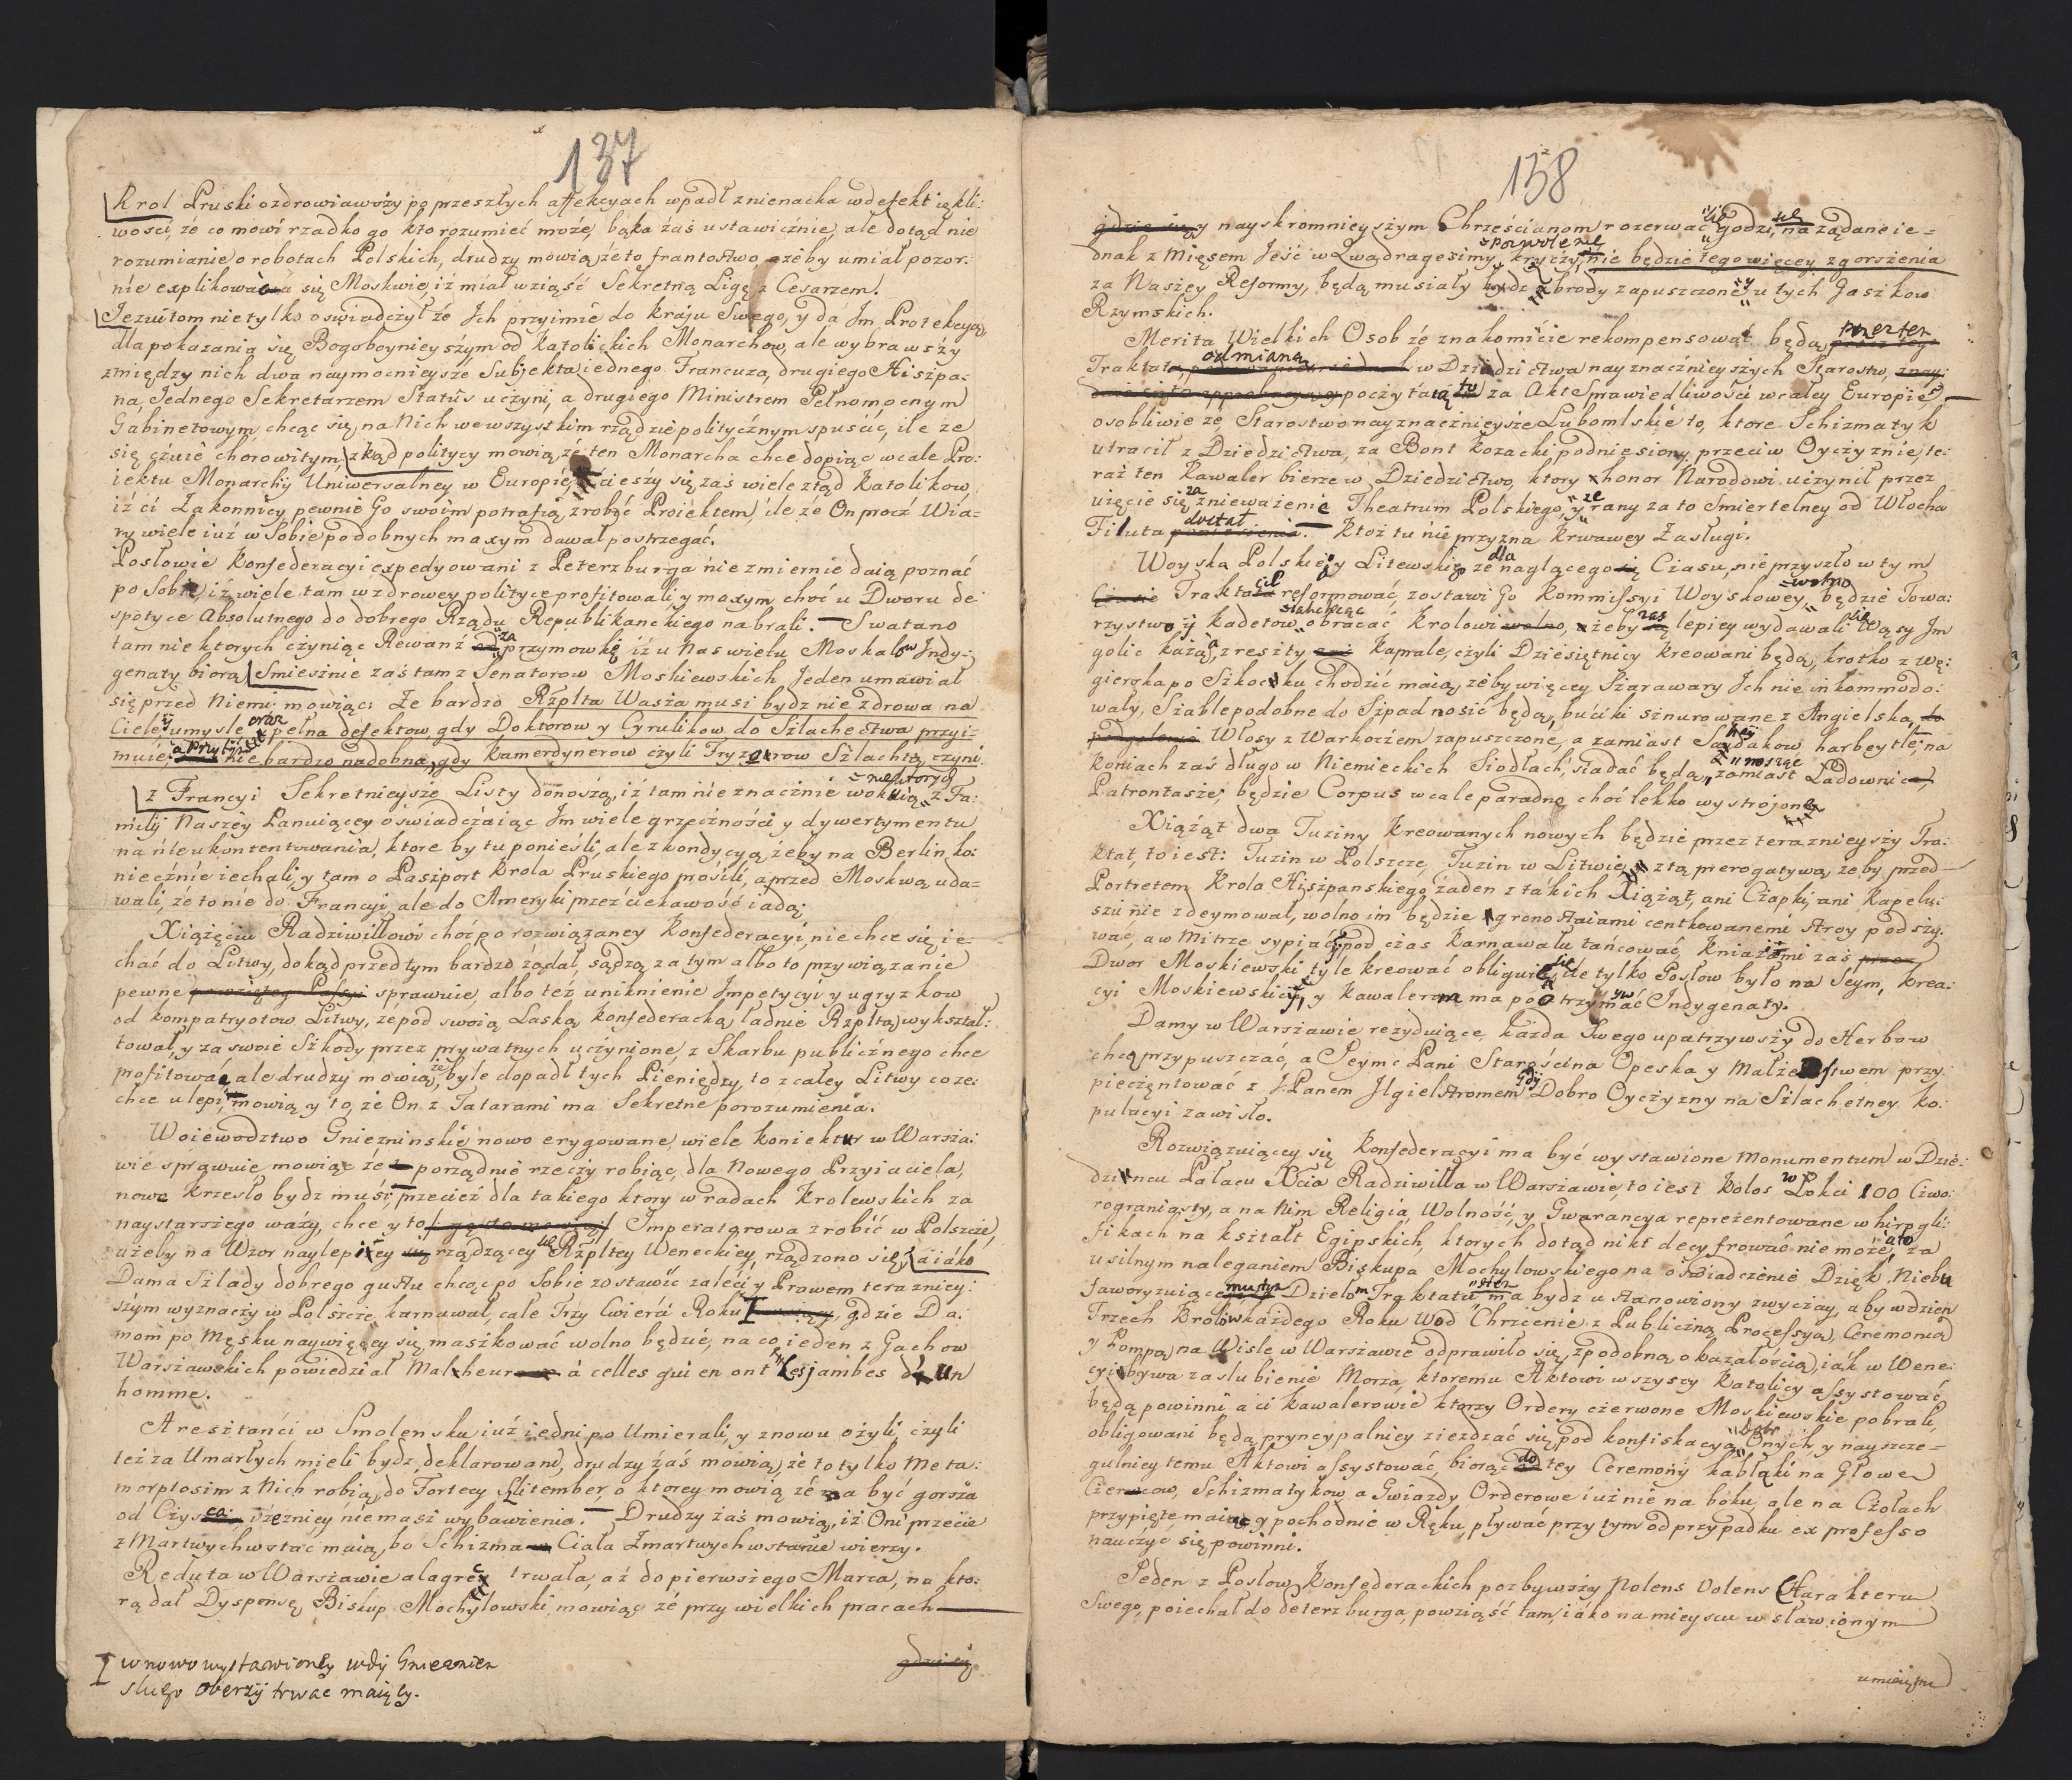 137
Krol Pruski ozdrowiawszy po przeszłych affekcyach wpadł znienacka w defekt iękli:
wości, że co mowi rzadko go kto rozumieć może, bąka zaś ustawicznie, ale dotąd nie
rozumianie o robotach Polskich, drudzy mowią że to frantostwo, ażeby umiał pozor:
nie explikować się Moskwie iż miał wziąść Sekretną Ligę z Cesarzem.
Jezuitom nie tylko oswiadczył że Ich przyimie do kraju Swego, y da Im Protekcyą,
dla pokazania się Bogoboynieyszym od Katolickich Monarchow, ale wybrawszy
zmiędzy nich dwa naymocnieysze Subjekta iednego Francuza, drugiego Hiszpa:
na, Jednego Sekretarzem Status uczyni, a drugiego Ministrem Pełnomocnym
Gabinetowym, chcąc się na Nich we wszystkim rządzie politycznym spuścić, ile że
się czuie chorowitym, zkąd politycy mowią że ten Monarcha chce dopiąc wcale Pro:
iektu Monarchij Uniwersalney w Europie, cieszy się zaś wiele ztąd Katolikow,
iż ci Zakonnicy pewnie Go swoim potrafią zrobić Proiektem, ile że On procz Wia=
ry wiele iuż w Sobie podobnych maxym dawał postrzegać.
Posłowie Konfederacyi expedyowani z Peterzburga niezmiernie daią poznać
po Sobie, iż wiele tam w zdrowey polityce profitowali, y maxym choć u Dworu de:
spotyce Absolutnego do dobrego Rządu Republikanckiego nabrali. Swatano
tam niektorych czyniąc Rewanż za przymowkę iż u Nas wielu Moskalow Indy:
genaty biorą, Smiesznie zaś tam z Senatorow Moskiewskich Jeden umawiał
się przed Niemi mowiąc: Że bardzo Rzplta Wasza musi bydz niezdrowa na
Ciele y umysle, oraz pełna defektow, gdy Doktorow y Cyrulikow do Szlachectwa przyi=
muie, a przytym nie bardzo nadobna, gdy Kamerdynerow czyli Fryzorow Szlachtą czyni.
z Francyi Sekretnieysze Listy donoszą, iż tam nieznacznie wokuią niektorych z Fa:
milij Naszey Panuiącey oswiadczaiąc Im wiele grzeczności y dywertymentu
na nieukontentowania, ktore by tu ponieśli, ale z kondycyą żeby na Berlin ko:
niecznie iechali, y tam o Paszport Krola Pruskiego prosili, a przed Moskwą uda=
wali, że to nie do Francyi, ale do Ameryki przez ciekawość iadą.
Xiążęciu Radziwiłłowi choć po rozwiązaney Konfederacyi, nie chce się ie=
chać do Litwy, dokąd przed tym bardzo żądał, sądzą za tym albo to przywiązanie
pewne sprawuie, albo też uniknienie Impetycyi y ugryzkow
od kompatryotow Litwy, że pod swoią Laską Konfederacką ładnie Rzpltą wykształ:
tował, y za swoie Szkody przez prywatnych uczynione, z Skarbu publicznego chce
profitować, ale drudzy mowią, że byle dopadł tych Pieniędzy, to z całey Litwy co ze:
chce ulepi, mowią y to, że On z Tatarami ma Sekretne porozumienia.
Woiewodztwo Gniezninskie nowo erygowane, wiele koniektur w Warsza:
wie sprawuie, mowiąc że porządnie rzeczy robiąc, dla Nowego Przyiaciela,
nowe Krzesło bydz musi, przecież dla takiego ktory w radach Krolewskich za
naystarszego waży, chce y to Imperatorowa zrobić w Polszcze,
ażeby na Wzor naylepiey rządzącey się Rzpltey Weneckiey, rządzono się, a iako
Dama Szlady dobrego gustu chcąc po Sobie zostawić zaleci y Prawem terazniey:
szym wyznaczy w Polszcze, karnawał, całe Trzy Cwierci Roku, gdzie Da:
mom po Męsku naywięcey się maszkować wolno będzie, na co ieden z Gachow
Warszawskich powiedział Malheur à celles qui en ont les jambes d'un
homme.
Aresztanci w Smolensku iuż iedni po Umierali, y znowu ożyli, czyli
też za Umarłych mieli bydz deklarowani, drudzy zaś mowią, że to tylko Meta:
morphosim z Nich robią, do Fortecy Slitember o ktorey mowią że ma być gorsza
od Czysca, iż z niey niemasz wybawienia. Drudzy zaś mowią, iż Oni przecie
z Martwych wstać maią, bo Schizma Ciała Zmartwychwstanie wierzy.
Reduta w Warszawie alagrec trwała, aż do pierwszego Marca, na kto:
rą dał Dyspensę Biskup Mochylowski, mowiąc że przy wielkich pracach
gdzie się
I w nowo wystawioney wdy Gnieznien
skiego oberży trwac maiący.
138
y nayskromnieyszym Chrześcianom rozerwać się godzi, na żądanie ie=
dnak z Mięsem Jeść w Quadragesimę, pozwolenie, nie będzie tego więcey zgorszenia
za Naszey Reformy, będą musiały bydz brody zapuszczone y u tych Gaszkow
Rzymskich.
Merita Wielkich Osob że znakomicie rekompensować będą przez ten
Traktat odmianą w Dziedzictwa nayznacznieyszych Starostw,
poczytaią to za Akt Sprawiedliwości w całey Europie,
osobliwie że, Starostwo nayznacznieysze Lubomlskie to, ktore Schizmatyk
utracił z Dziedzictwa, za Bont Kozacki podniesiony przeciw Oyczyznie, te:
raz ten Kawaler bierze w Dziedzictwo, ktory honor Narodowi uczynił przez
uięcie się za znieważenie Theatrum Polskiego, y że rany za to Smiertelney od Włocha
Filuta dostał. Ktoż tu nie przyzna krwawey Zasługi.
Woyska Polskiego y Litewskiego że dla naglącego Czasu, nie przyszło w tym
Traktacie reformować, zostawi Go Kommissyi Woyskowey, wolno będzie Towa:
rzystwo y Kadetow obracać Krolowi, żeby zaś lepiey wydawali się Wąsy Im
golic każą, z reszty Kaprale, czyli Dziesiętnicy kreowani będą, krotko z Wę:
gierska po Szkocku chodzić maią, żeby więcey Szarawary Ich nie inkommodo:
wały, Szable podobne do Szpad nosić będą, buciki sznurowane z Angielska,
Włosy z Warkoczem zapuszczone, a zamiast Saydakow harbeytle, na
koniach zaś długo w Niemieckich Siodłach siadać będą, nosząc zamiast Ładownic
Patrontasze, będzie Corpus wcale paradne choć lekko wystrojone.
Xiążąt dwa Tuziny kreowanych nowych będzie przez teraznieyszy Tra:
ktat, to iest: Tuzin w Polszcze, Tuzin w Litwie, z tą prerogatywą, żeby przed
Portretem Krola Hiszpanskiego, żaden z takich Xiążąt, ani Czapki, ani Kapelu:
szu nie zdeymował, wolno im będzie gronostaiami centkowanemi Stroy podszy:
wac, a w Mitrze sypiać, y pod czas Karnawału tańcować, kniaziami zaś
Dwor Moskiewski tyle kreować obliguie się, ile tylko Posłow było na Seym, krea:
cyi Moskiewskiey, y Kawalerom ma po otrzymać Indygenaty.
Damy w Warszawie rezyduiące, każda Swego upatrzywszy do Herbow
chcą przypuszczać, a Seyme Pani Starościna Opeska y Małżenstwem przy:
pieczętować z J: Panem Jlgielstromem gdy Dobro Oyczyzny na Szlachetney ko:
pulacyi zawisło.
Rozwiązuiącey się Konfederacyi ma być wystawione Monumentum w Dzie:
dzincu Pałacu Xcia Radziwiłła w Warszawie, to iest Kolos w Łokci 100 Czwo:
rograniasty, a na Nim Religia, Wolność, y Gwarancya reprezentowane w hirogli:
fikach na kształt Egipskich, ktorych dotąd nikt decyfrować nie może, a to za
usilnym naleganiem Biskupa Mochylowskiego na oswiadczenie Dzięk Niebu
faworyzuiącemu Dziełom Traktatu ma bydz ustanowiony zwyczay, aby w dzien
Trzech Krolow każdego Roku Wod Chrzcenie z Publiczną Processyą, Ceremonią
y Pompą na Wisle w Warszawie odprawiło się, z podobną okazałością, iak w Wene:
cyi bywa zaslubienie Morza, ktoremu Aktowi wszyscy Katolicy assystować
będą powinni, a ci Kawalerowie ktorzy Ordery czerwone Moskiewskie pobrali,
obligowani będą pryncypalniey ziezdzać się, pod konfiskacyą Onych, y nayszcze=
gulniey temu Aktowi assystować, biorąc do tey Ceremony kabłąki na Głowe
Czerncow, Schizmatykow, a Gwiazdy Orderowe iuż nie na boku, ale na Czołach
przypięte maiąc y pochodnie w Ręku, pływać przy tym od przypadku ex professo
nauczyć się powinni.
Jeden z Posłow Konfederackich pozbywszy Nolens Volens Charakteru
Swego, poiechał do Peterzburga, powziąść tam, iako na mieyscu wsławionym